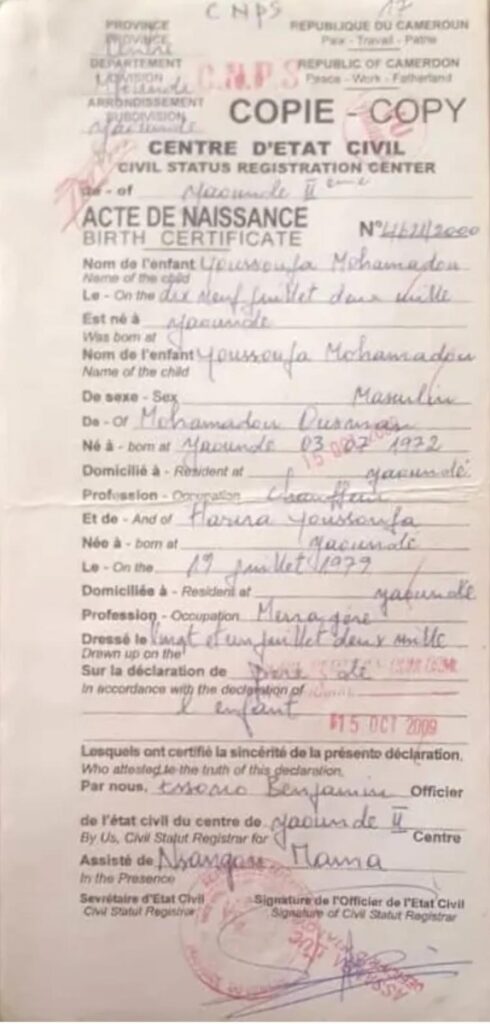 CNPS 17
PROVINCE REPUBLIQUE DU CAMEROUN
PROVINCE Centre Paix - Travail - Patrie
DEPARTEMENT REPUBLIC OF CAMEROON
DIVISION Peace - Work - Fatherland
C.N.P.S
ARRONDISSEMENT COPIE - COPY
SUBDIVISION Yaoundé
CENTRE D'ETAT CIVIL
CIVIL STATUS REGISTRATION CENTER
de - of Yaoundé II eme
ACTE DE NAISSANCE N° /2000
BIRTH CERTIFICATE
Nom de l'enfant Youssoufa Mohamadou
Name of the child
Le - On the dix neuf juillet deux mille
Est né à Yaoundé
Was born at
Nom de l'enfant Youssoufa Mohamadou
Name of the child
De sexe - Sex Masculin
De - Of Mohamadou Ousman
Né à - born at Yaoundé 03 07 1972
Domicilié à - Resident at Yaoundé
Profession - Occupation Chauffeur
Et de - And of Harira Youssoufa
Née à - born at Yaoundé
Le - On the 19 juillet 1979
Domiciliée à - Resident at Yaoundé
Profession - Occupation Menagère
Dressé le vingt et un juillet deux mille
Drawn up on the
Sur la déclaration de Père de
In accordance with the declaration of
l'enfant
15 OCT 2009
Lesquels ont certifié la sincérité de la présente déclaration.
Who attested to the truth of this declaration.
Par nous, Essono Benjamin Officier
de l'état civil du centre de Yaoundé II
By Us, Civil Statut Registrar for Centre
Assisté de Nsangou Mama
In the Presence
Sevrétaire d'Etat Civil Signature de l'Officier de l'Etat Civil
Civil Statut Registrar Signature of Civil Statut Registrar